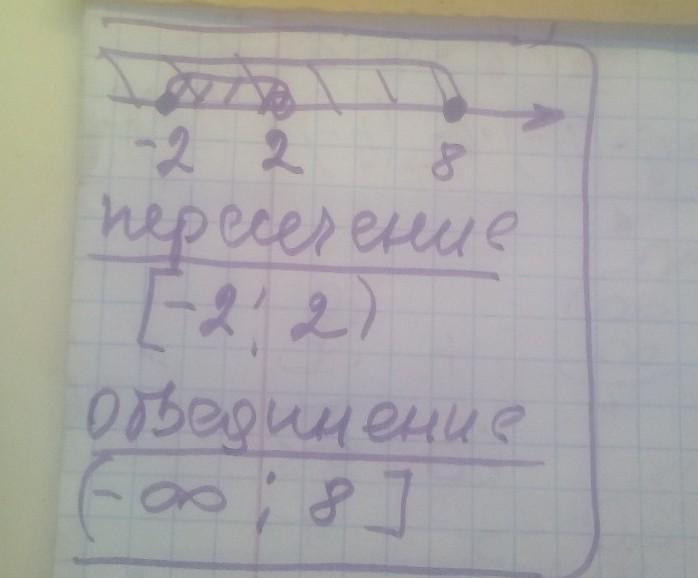 -2 2 8
пересечение
[-2; 2)
объединение
(-∞; 8]